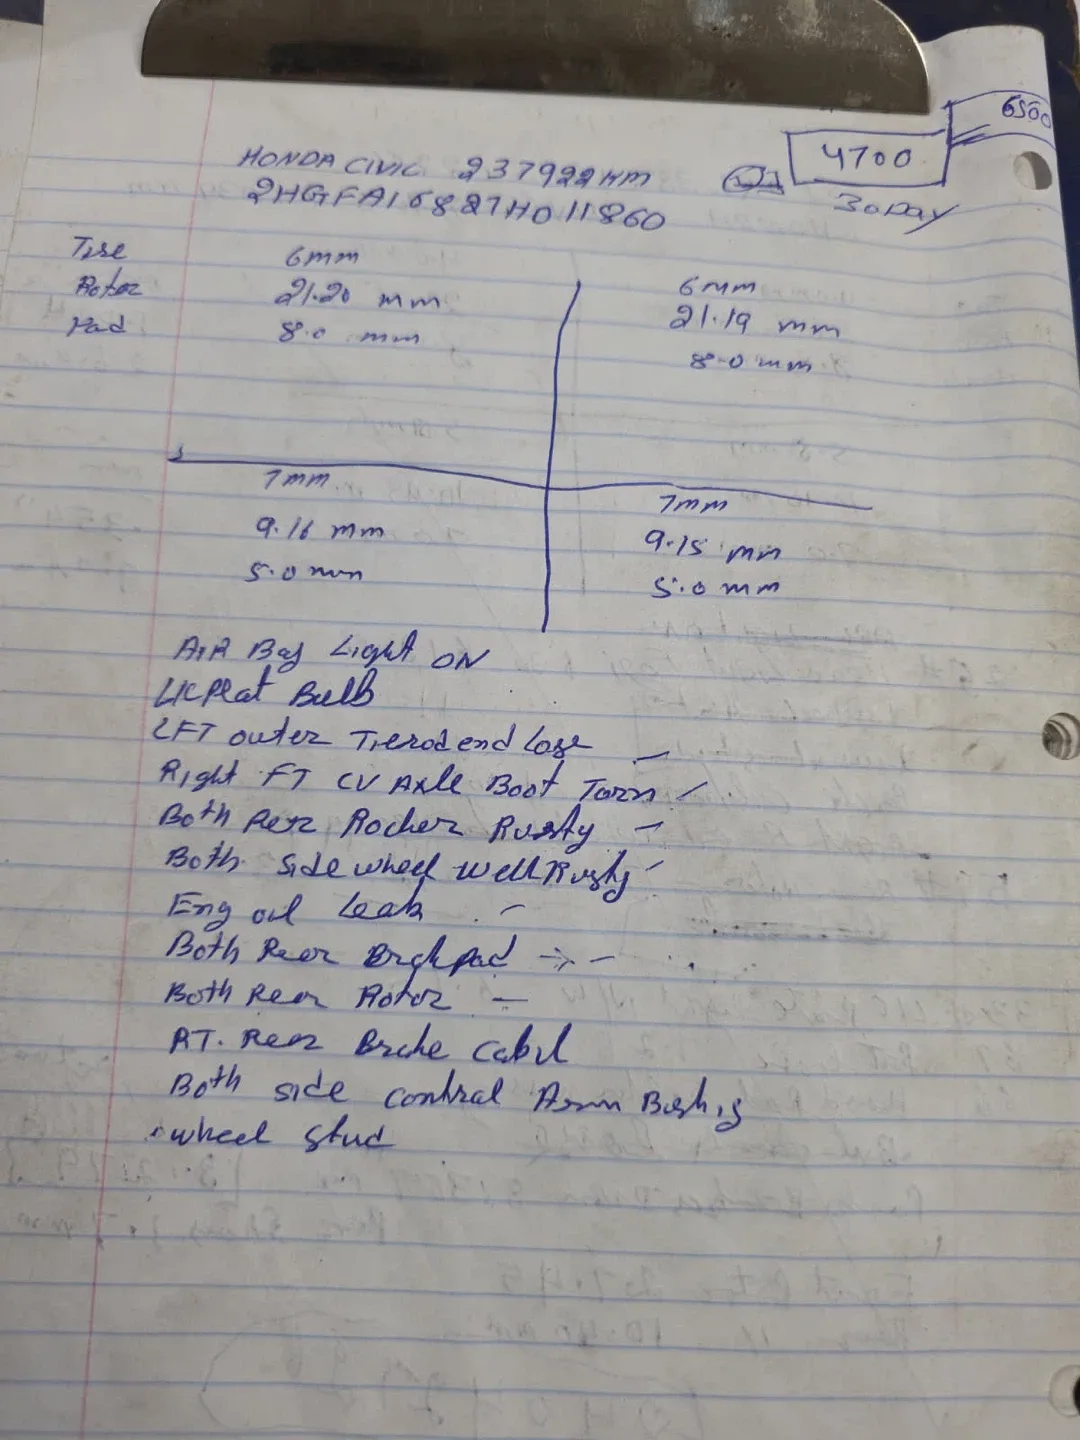 6500
4700
30 Day
HONDA CIVIC 237922 KM
2HGFA16827H011860
Tire 6mm 6mm
Rotor 21.20 mm 21.19 mm
Pad 8.0 mm 8.0 mm
7mm 7mm
9.16 mm 9.15 mm
5.0 mm 5.0 mm
AIR Bag Light ON
LIC Plat Bulb
LFT outer Tierod end Lose
Right FT CV Axle Boot Torn
Both Rer Rocker Rusty
Both side wheel well Rusty
Eng oil Leak
Both Rear Brakpad
Both Rear Rotor
RT. Rear Brake Cabil
Both side control Arm Bushig
wheel stud